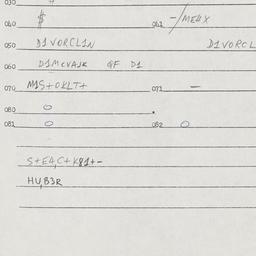 030
040 $ 041 -/MEHX
050 D1VORCL1N D1VORCL
060 D1MCVAJK GF D1
070 M1S+OKLT+ 071 —
080 O
081 O 082 O
S+E4,C+K81+-
HU,B3R